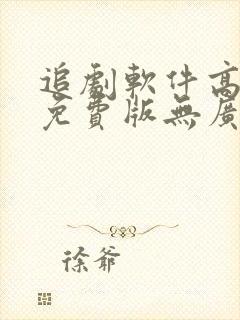 追劇軟件高
免費版無廣
徐爺